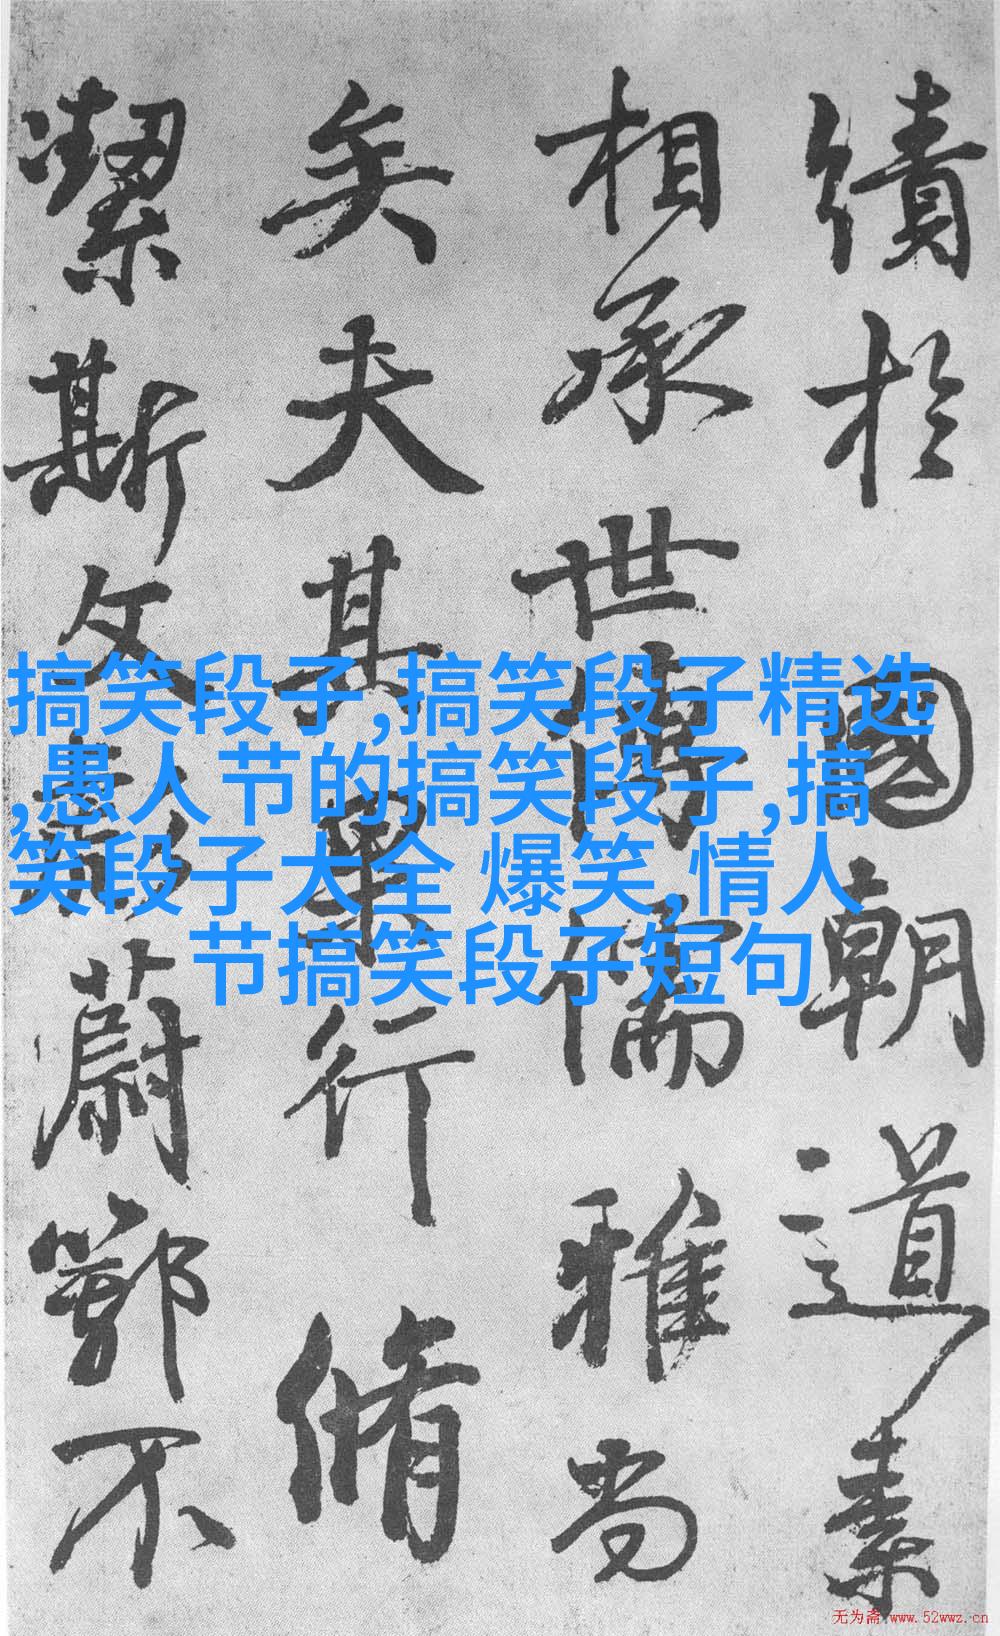 績於國朝道素
相承世傳儒雅尚
矣夫其畢行脩
潔斯文彪蔚鄂不
搞笑段子,搞笑段子精选
,愚人节的搞笑段子,搞
笑段子大全 爆笑,情人
节搞笑段子短句
无为斋 www.52wwz.cn